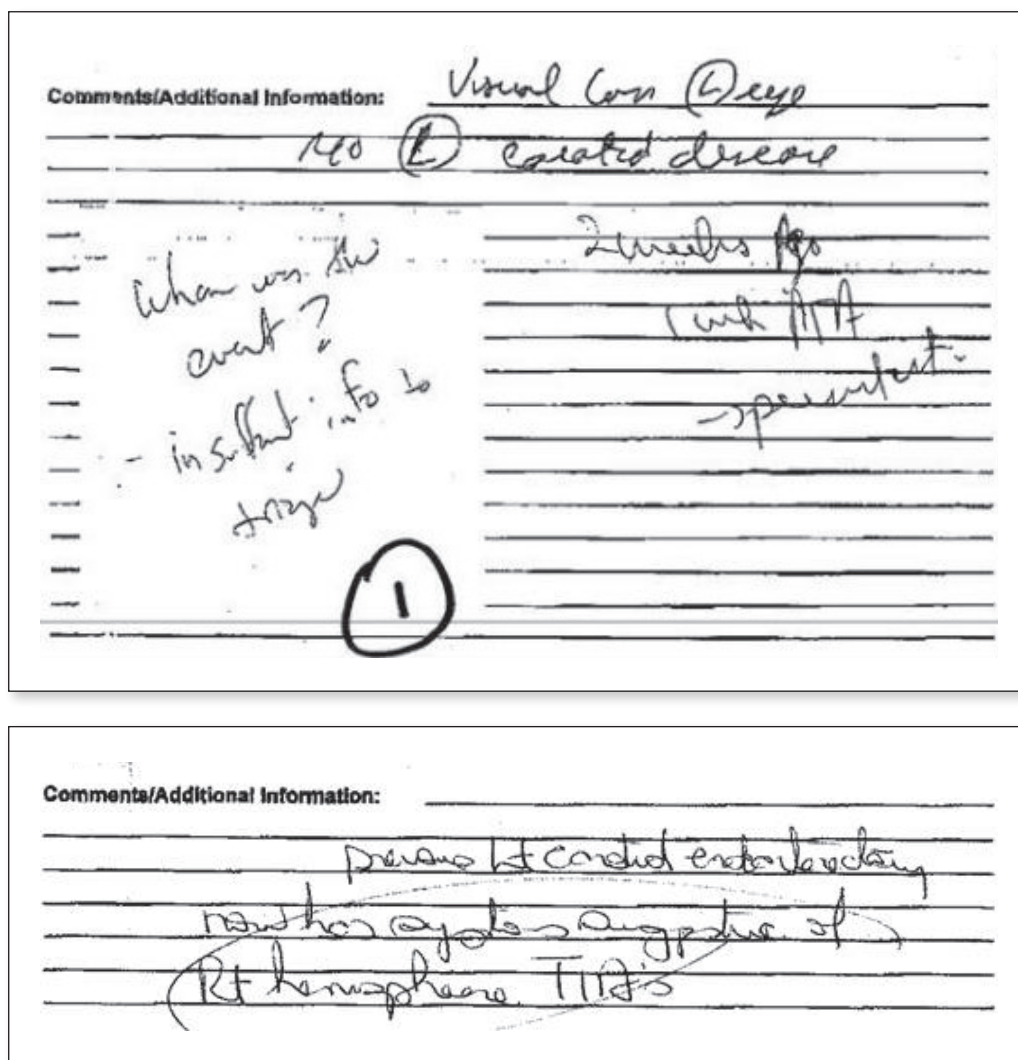 Comments/Additional Information: Visual Loss (L) eye
(L) carotid disease
when was the
event?
- insuffient info to
triage
2 weeks Ago
persistent
1
Comments/Additional Information:
previous Lt carotid endarterectomy
now has symptoms suggestive of
Rt hemisphere TIA's